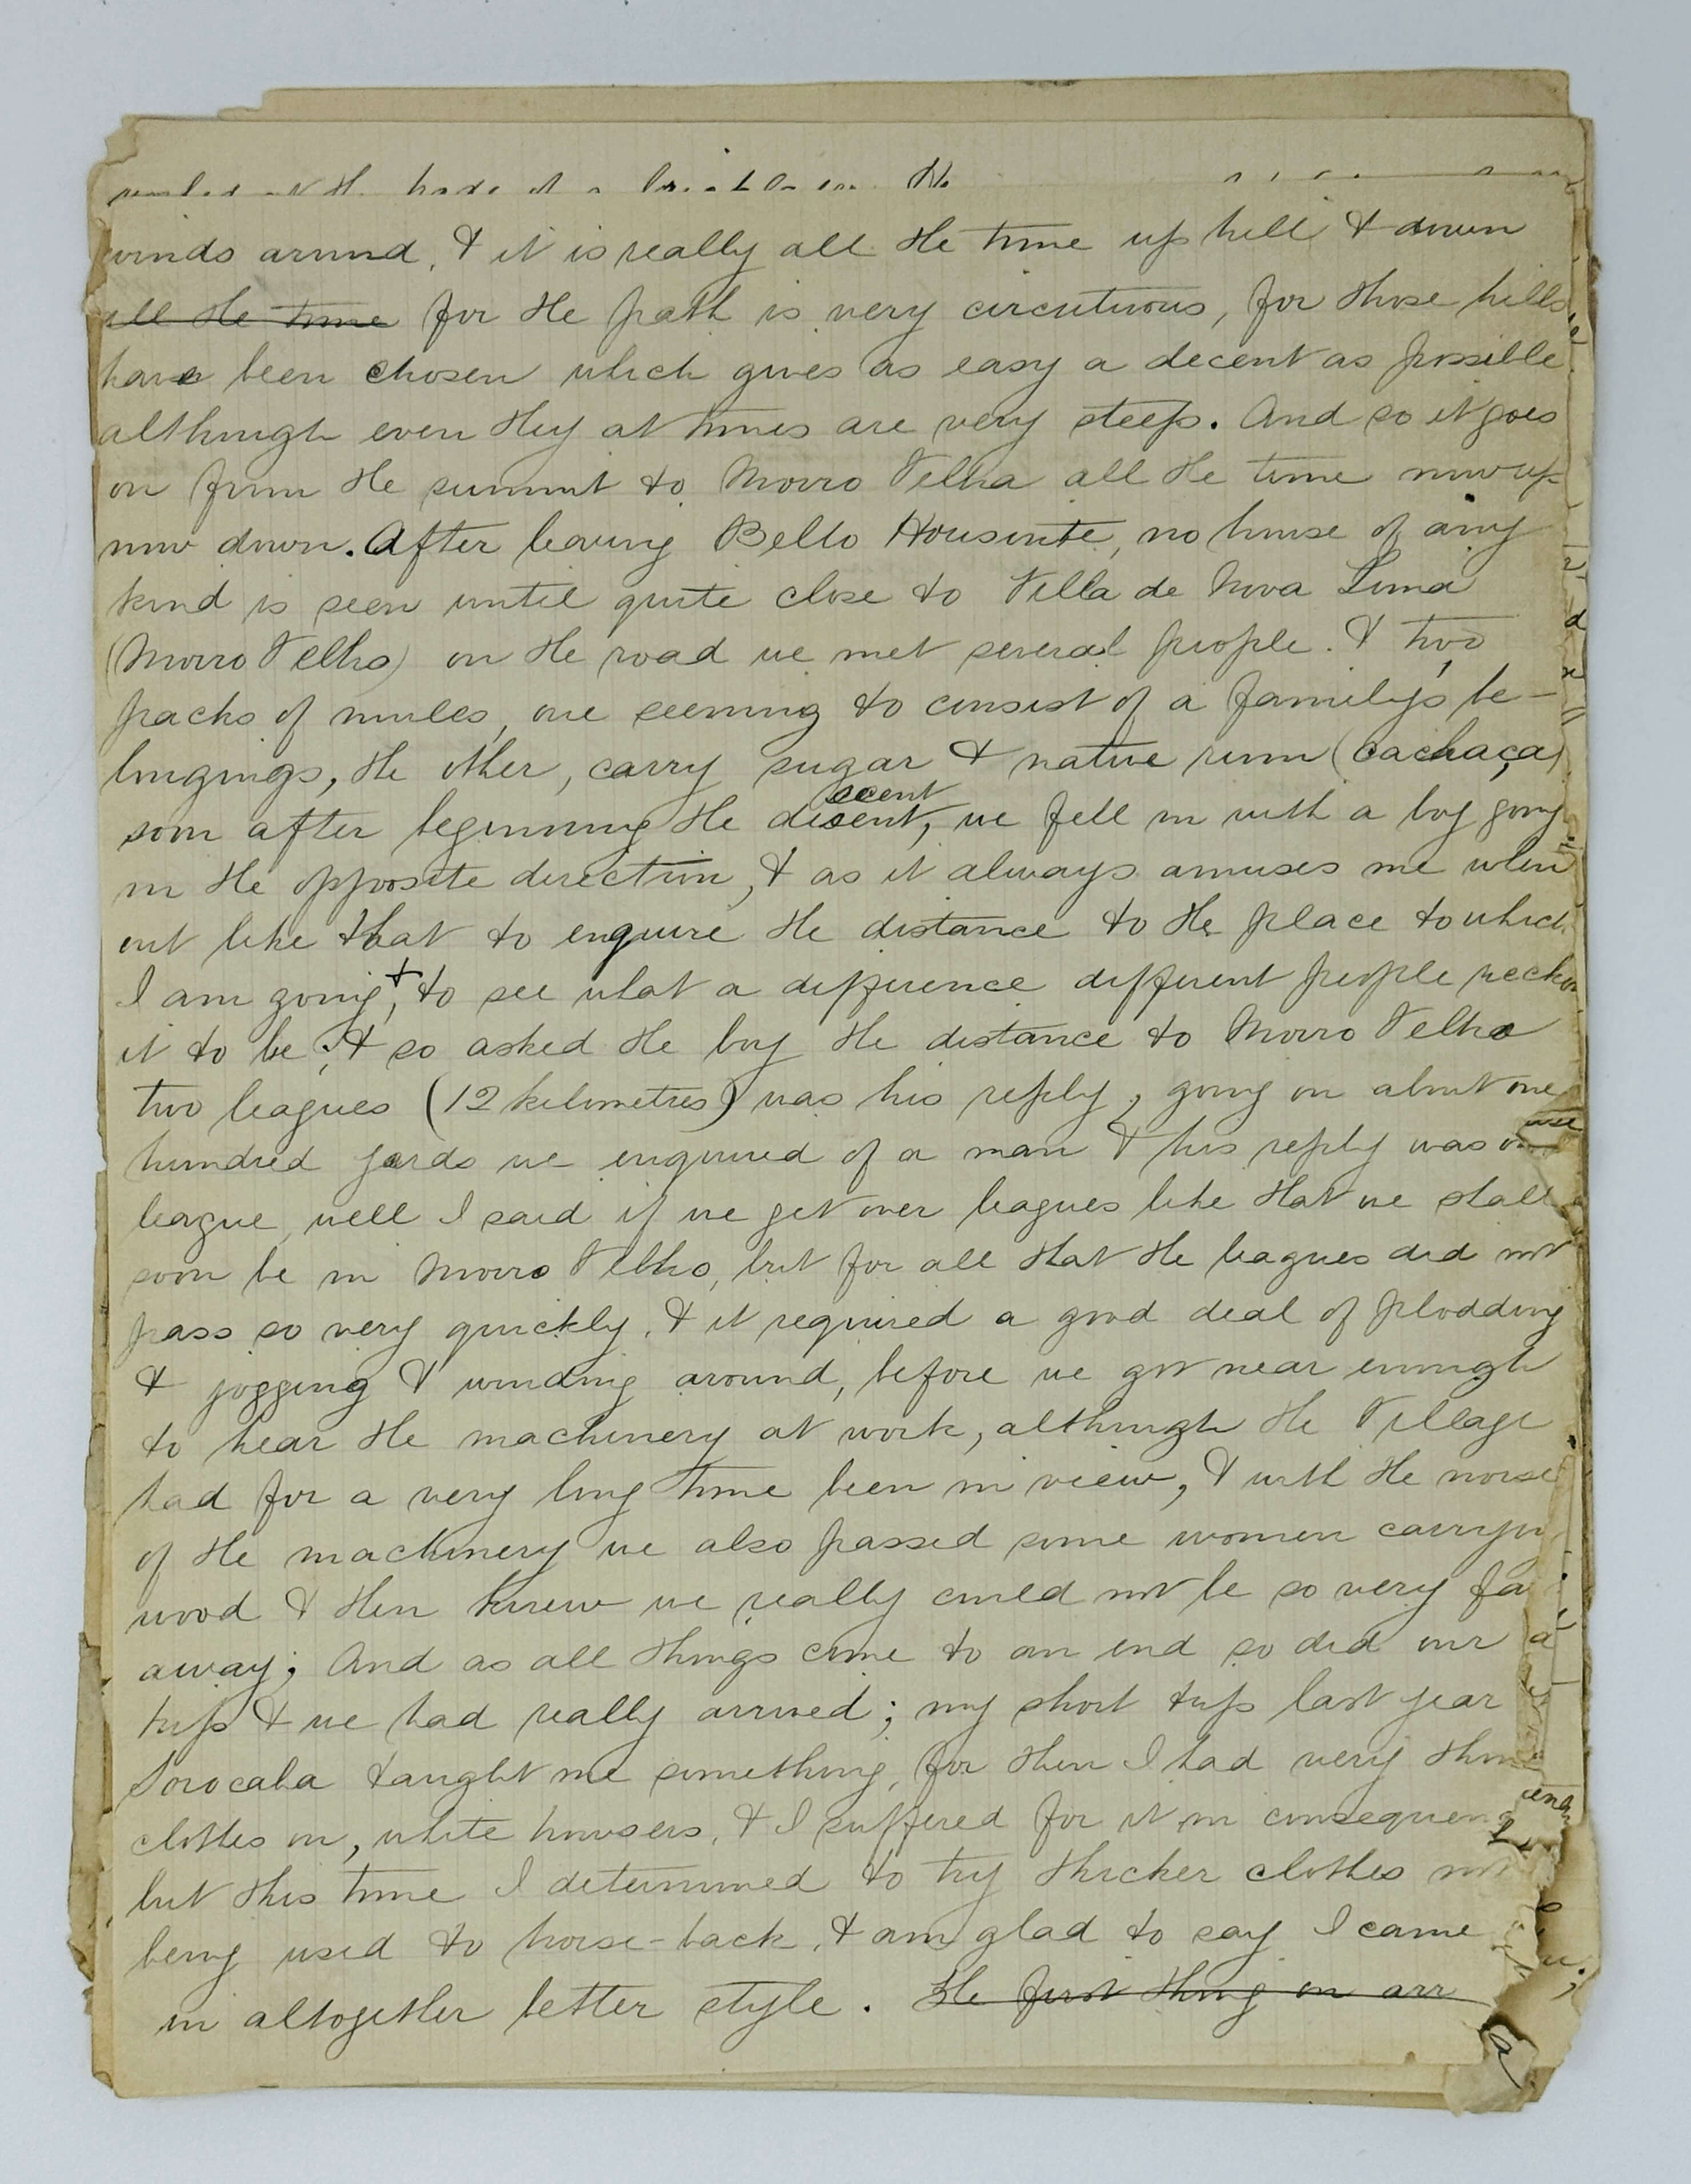 winds around, & it is really all the time up hill & down
all the time for the path is very circuituous, for those hills
have been chosen which gives as easy a decent as possible
although even they at times are very steep. And so it goes
on from the summit to Morro Velha all the time now up
now down. After leaving Bello Housinte, no house of any
kind is seen until quite close to Villa de Nova Lima
(Morro Velho) on the road we met several people. & two
packs of mules, one seeming to consist of a family's be-
longings, the other, carry sugar & native rum (cachaça)
scent
soon after beginning the decent, we fell in with a boy going
in the opposite direction, & as it always amuses me when
out like that to enquire the distance to the place to which
I am going, & to see what a difference different people reckon
it to be, & so asked the boy the distance to Morro Velho
two leagues (12 kilometres) was his reply, going on about one
hundred yards we enquired of a man & his reply was
league, well I said if we get over leagues like that we shall
soon be in Morro Velho, but for all that the leagues did not
pass so very quickly, & it required a good deal of plodding
& jogging & winding around, before we got near enough
to hear the machinery at work, although the Village
had for a very long time been in view, & with the noise
of the machinery we also passed some women carryin
wood & then knew we really could not be so very fa
away; And as all things come to an end so did our
trip & we had really arrived; my short trip last year
Sorocaba taught me something, for then I had very thin
clothes on, white trousers, & I suffered for it in consequen
but this time I determined to try thicker clothes not
being used to horse-back, & am glad to say I came
in altogether better style. The first thing on arr